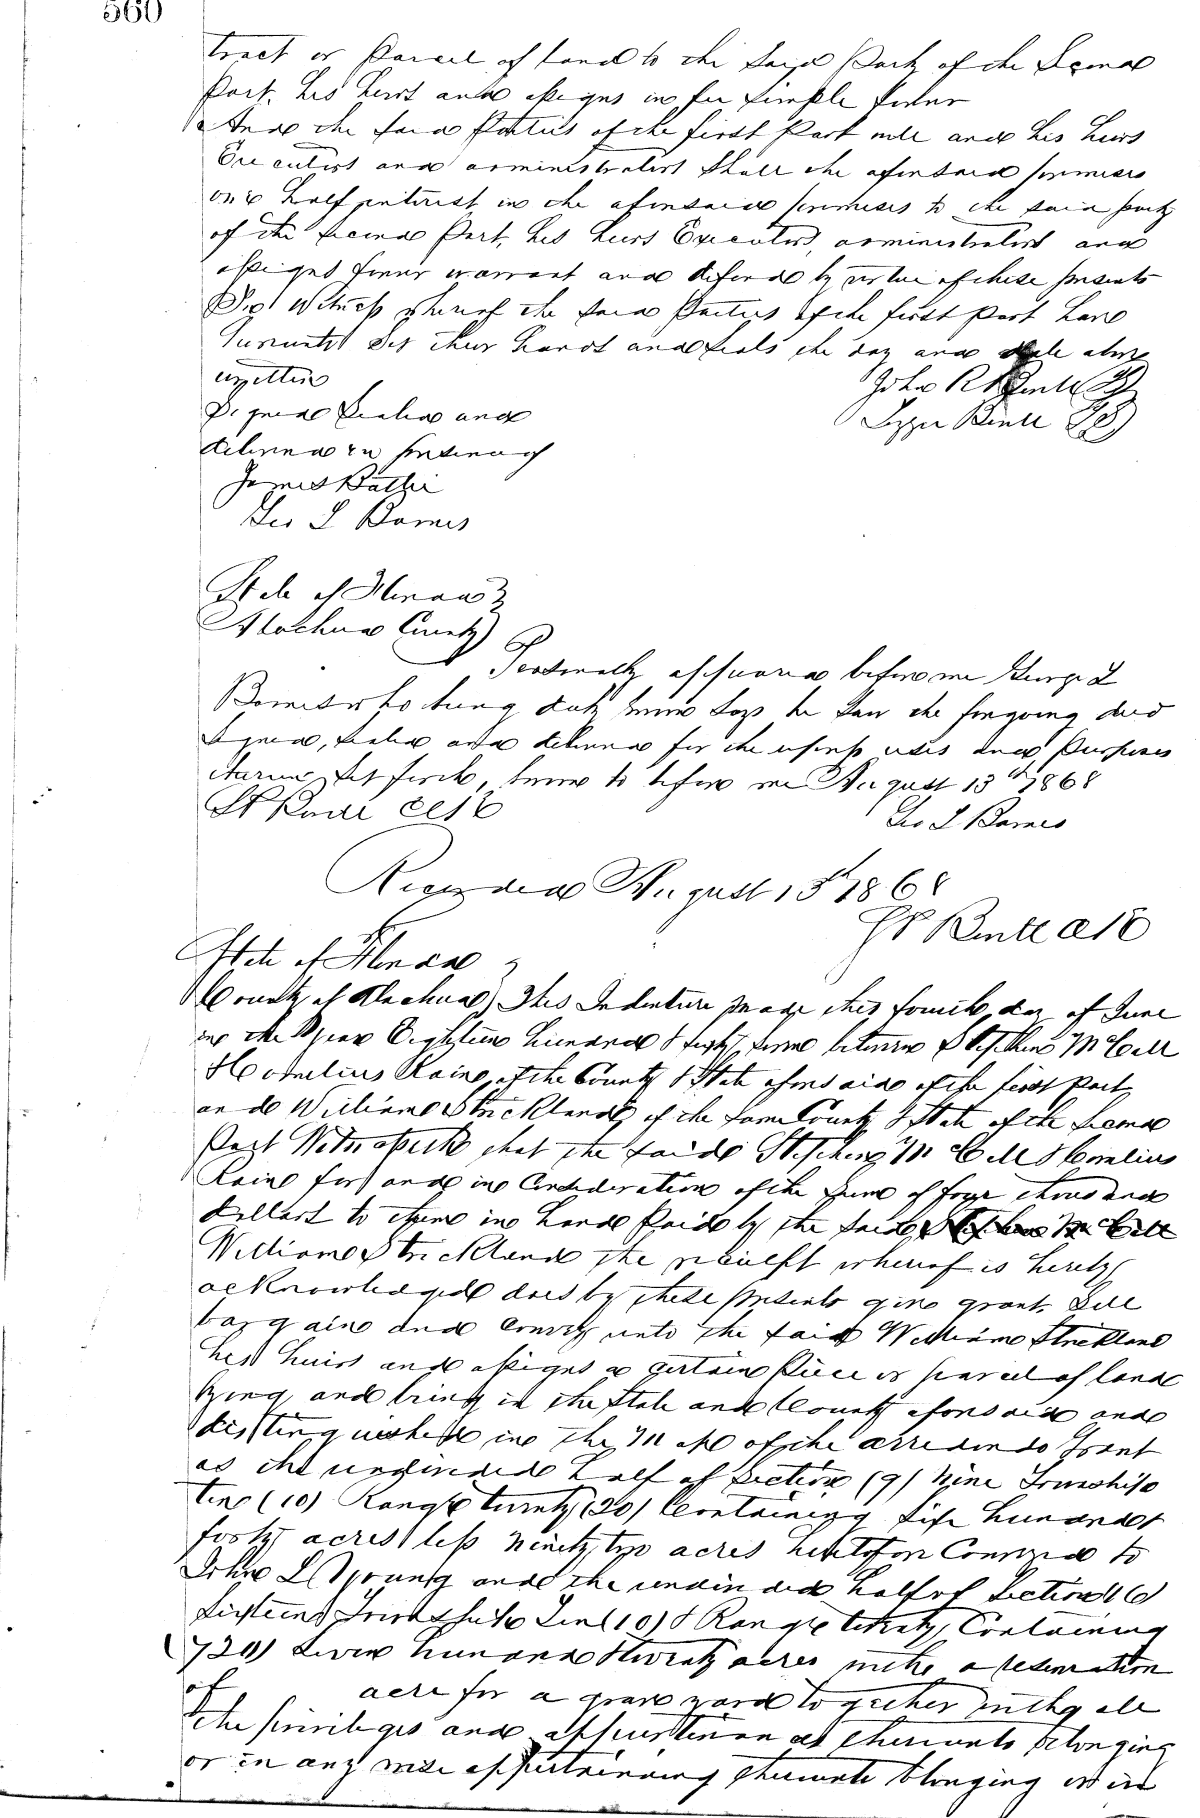 560
tract or Parcel of land to the Said Party of the Second
Part, his heirs and assigns in fee Simple forever
And the said Parties of the first Part will and his heirs
Executors and administrators Shall the aforesaid premises
one half interest in the aforesaid premises to the said party
of the second Part, his heirs Executors, administrators and
assigns forever warrant and defend by virtue of these presents
In Witness whereof the said Parties of the first Part have
hereunto Set their hands and seals the day and date above
written
John R
Signed Sealed and
delivered in presence of
James
Geo L Barnes
State of Florida
Alachua County
Personally appeared before me George L
Barnes who being duly sworn says he saw the foregoing deed
Signed, sealed and delivered for the uses and Purposes
therein set forth, sworn to before me August 13th 1868
Geo L Barnes
Recorded August 13th 1868
State of Florida
County of Alachua This Indenture made this fourth day of June
in the year Eighteen hundred & sixty between Stephen McCall
& Cornelius Rain, of the County & State aforesaid of the first Part
and William Strickland of the same County & State of the Second
Part Witnesseth that the said Stephen McCall & Cornelius
Rain for and in Consideration of the Sum of four thousand
dollars to them in hand Paid by the said Stephen McCall
William Strickland the receipt whereof is hereby
acknowledged does by these presents give grant, Sell
bargain and Convey unto the said William Strickland
his heirs and assigns a certain Piece or parcel of land
lying and being in the State and County aforesaid and
distinguished in the Map of the arredondo Grant
as the undivided half of Section (9) Nine Township
ten (10) Range twenty (20) Containing Six hundred &
forty acres less Ninety two acres heretofore Conveyed to
John L Young and the undivided half of Section (16)
Sixteen, Township Ten (10) & Range twenty, Containing
(720) Seven hundred & twenty acres with a reservation
of acre for a grave yard together with all
the privileges and appurtenances thereunto belonging
or in any wise appertaining thereunto blonging or in